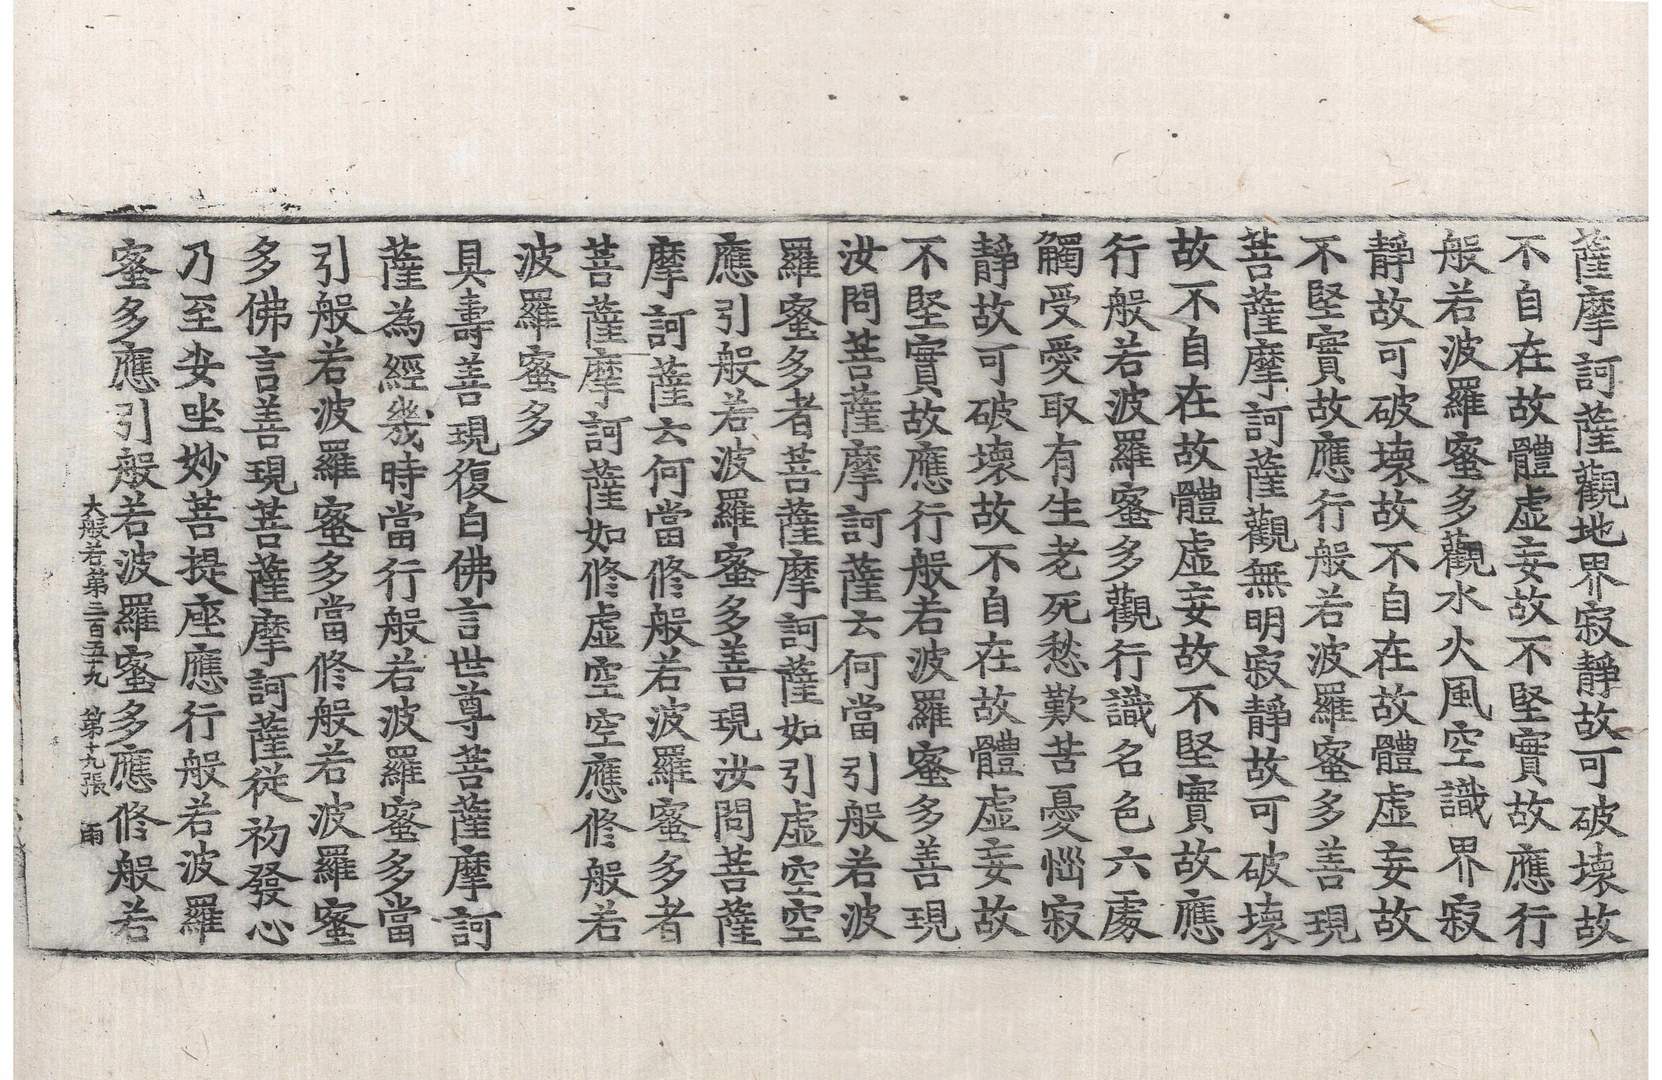 薩摩訶薩觀地界寂靜故可破壞故
不自在故體虛妄故不堅實故應行
般若波羅蜜多觀水火風空識界寂
靜故可破壞故不自在故體虛妄故
不堅實故應行般若波羅蜜多善現
菩薩摩訶薩觀無明寂靜故可破壞
故不自在故體虛妄故不堅實故應
行般若波羅蜜多觀行識名色六處
觸受愛取有生老死愁歎苦憂惱寂
靜故可破壞故不自在故體虛妄故
不堅實故應行般若波羅蜜多善現
汝問菩薩摩訶薩云何當引般若波
羅蜜多者菩薩摩訶薩如引虛空空
應引般若波羅蜜多善現汝問菩薩
摩訶薩云何當修般若波羅蜜多者
菩薩摩訶薩如修虛空空應修般若
波羅蜜多
具壽善現復白佛言世尊菩薩摩訶
薩為經幾時當行般若波羅蜜多當
引般若波羅蜜多當修般若波羅蜜
多佛言善現菩薩摩訶薩從初發心
乃至安坐妙菩提座應行般若波羅
蜜多應引般若波羅蜜多應修般若
大般若第三百五十九 第十九張 雨